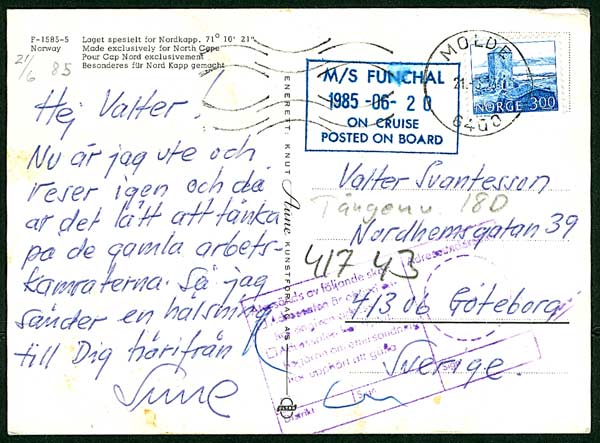 P-1585-5 Laget spesielt for Nordkapp. 71° 10' 21"
Norway Made exclusively for North Cape
Pour Cap Nord exclusivement
Besonderes für Nord Kapp gemacht
21/6 85
Hej Valter!
Nu är jag ute och
reser igen och då
är det lätt att tänka
på de gamla arbets-
kamraterna. Så jag
sänder en hälsning
till Dig härifrån
Sune
ENERETT: KNUT Aune KUNSTFORLAG A/S
M/S FUNCHAL
1985 -06- 20
ON CRUISE
POSTED ON BOARD
MOLDE
6400
NORGE 300
Valter Svantesson
Tångenv. 18D
Nordhemsgatan 39
417 43
413 06 Göteborg
Sverige.
av följande skäl
upphört att gälla
Sign